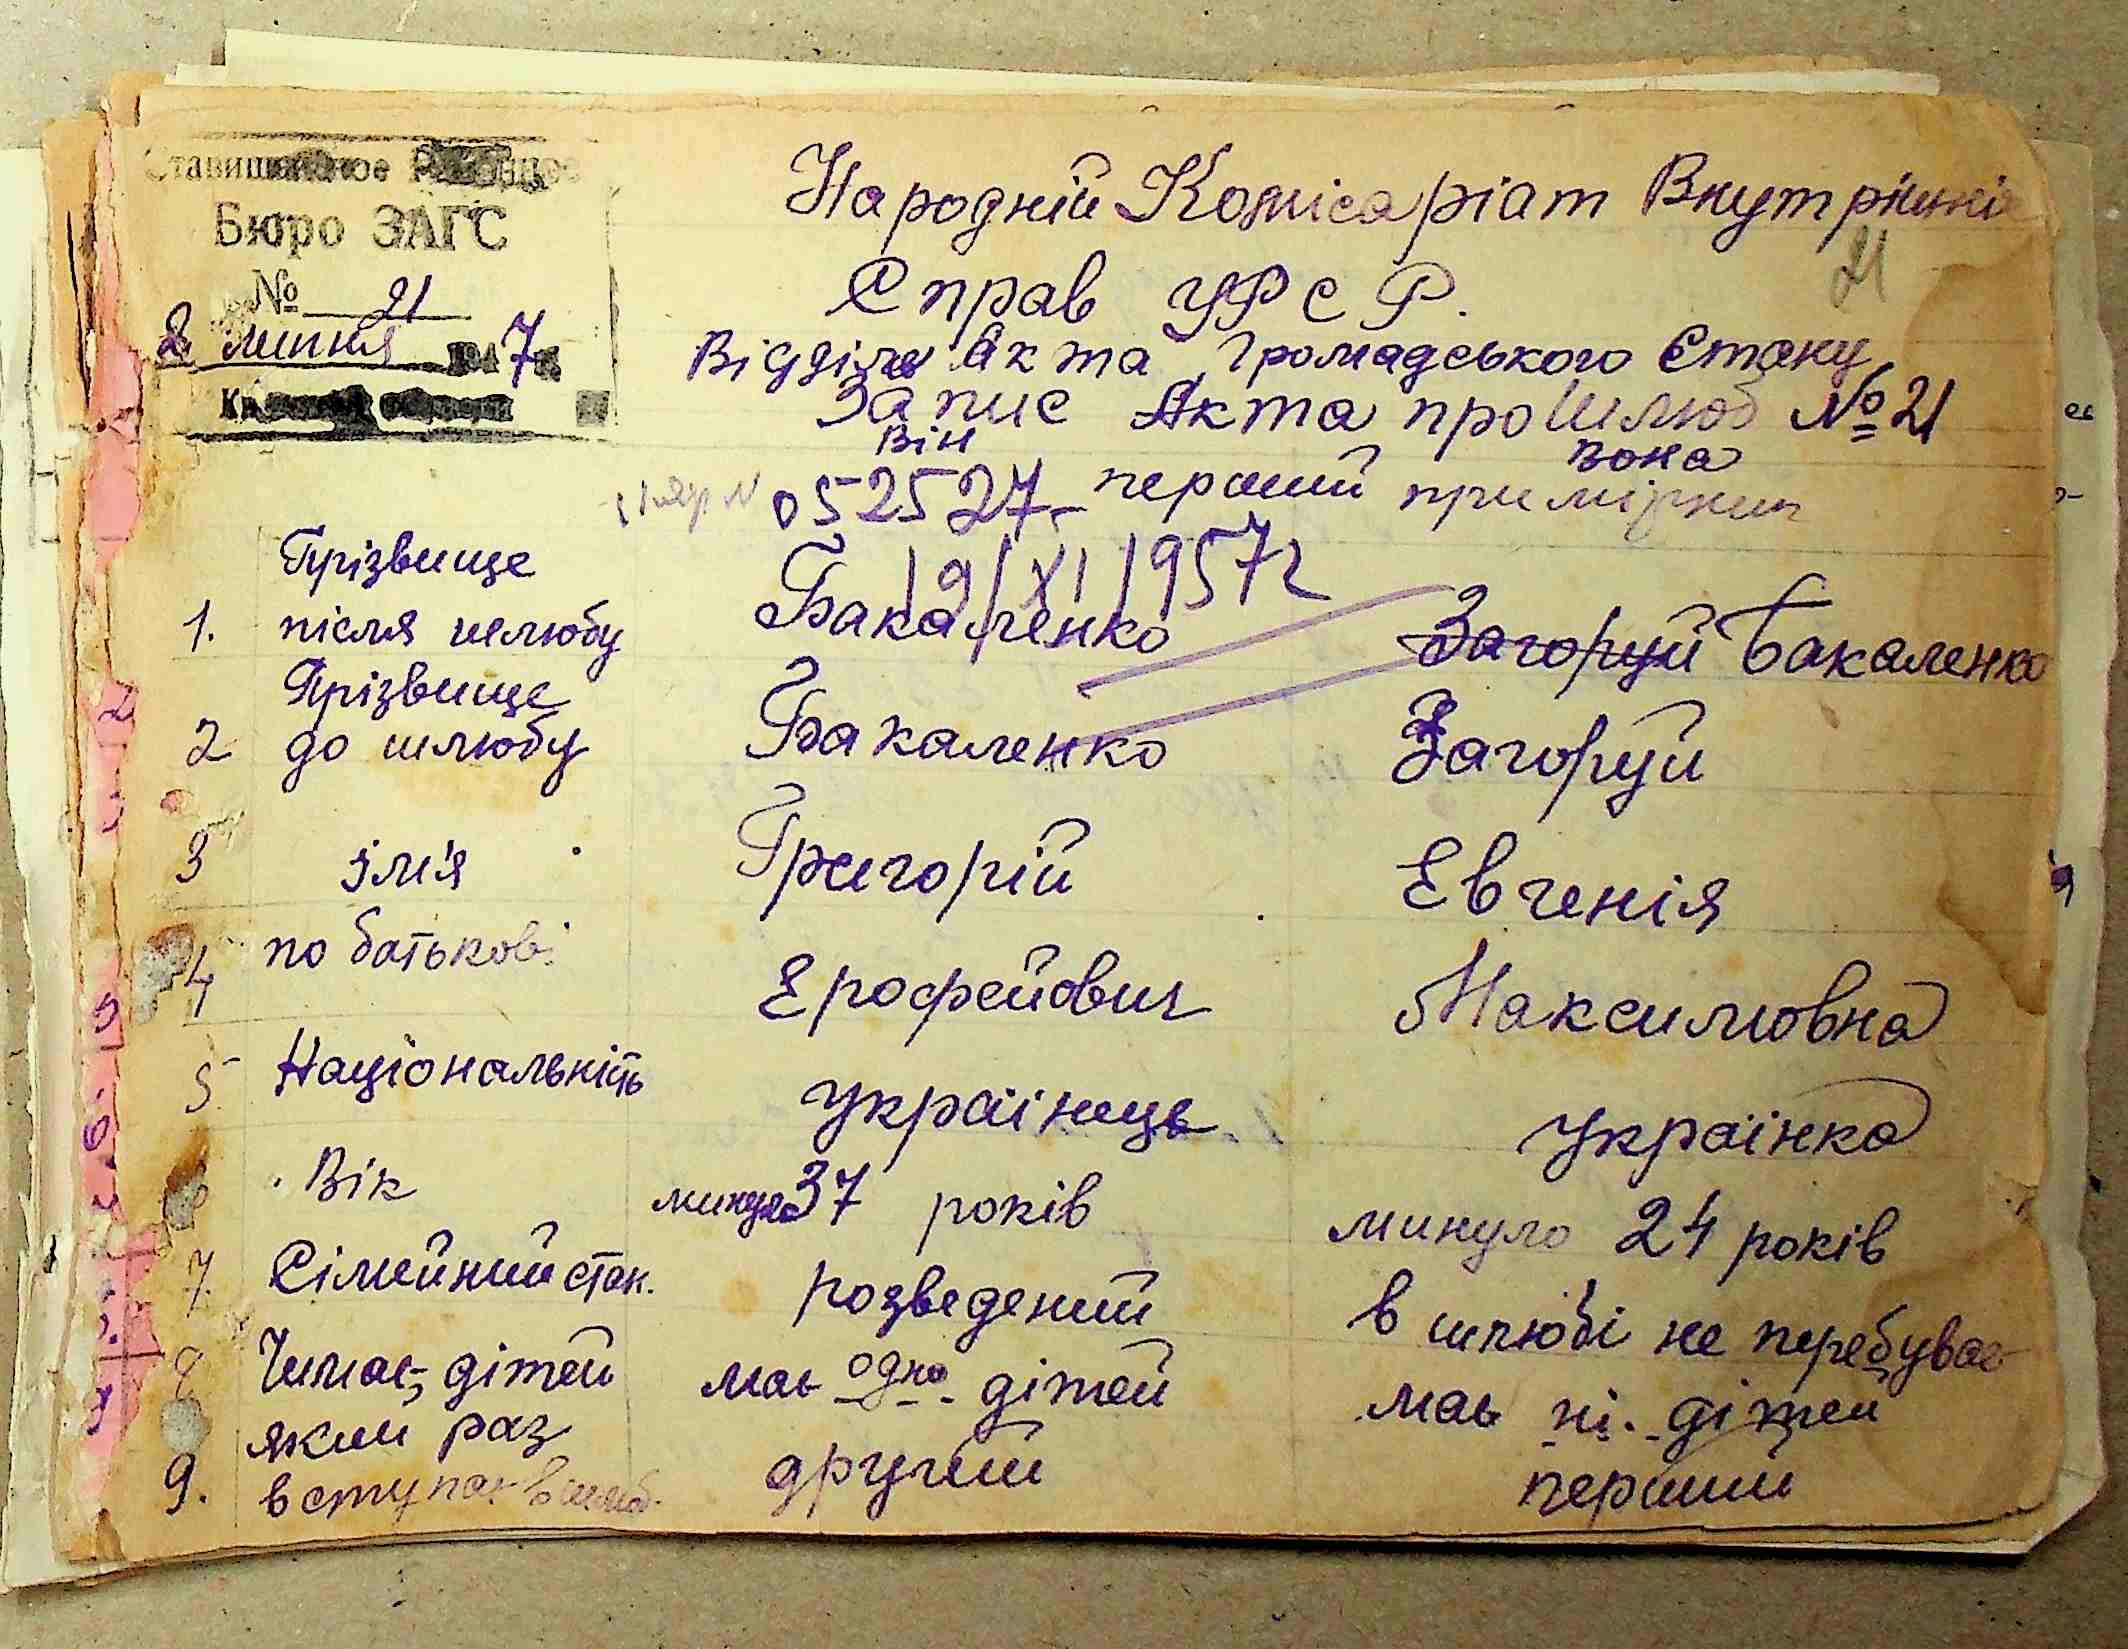 Ставищанское Районное
Бюро ЗАГС
№ 21
2 липня 1947 г.
Народній Комісаріат Внутрішніх
21
Справ УРСР.
Відділ Акта Громадського Стану
Запис Акта про Шлюб № 21
Він Вона
052527 - перший примірник
19/XI 1957г
Прізвище
1. після шлюбу Бакаленко Загоруй Бакаленко
Прізвище
2 до шлюбу Бакаленко Загоруй
3 імя Григорій Евгенія
4 по батькові Ерофейович Максимовна
5 Національність Українець Українка
6 Вік минуло 37 років минуло 24 років
7. Сімейний стан. розведений в шлюбі не перебуває
8 Чи має дітей має одно дітей має ні. дітей
який раз
9. вступає в шлюб. другий перший